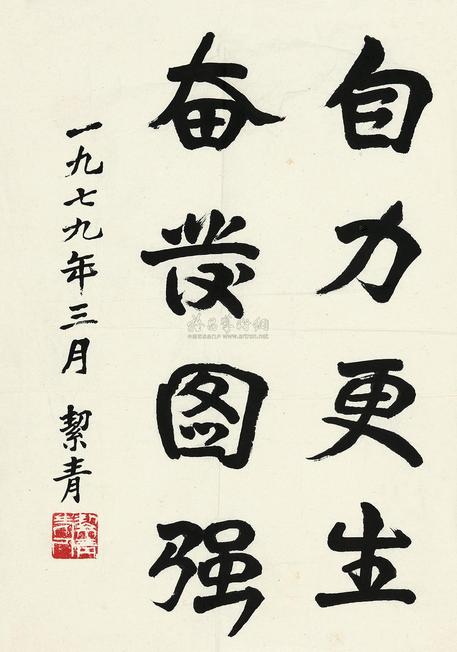 自力更生
奋发图强
一九七九年三月 絜青
www.artron.net